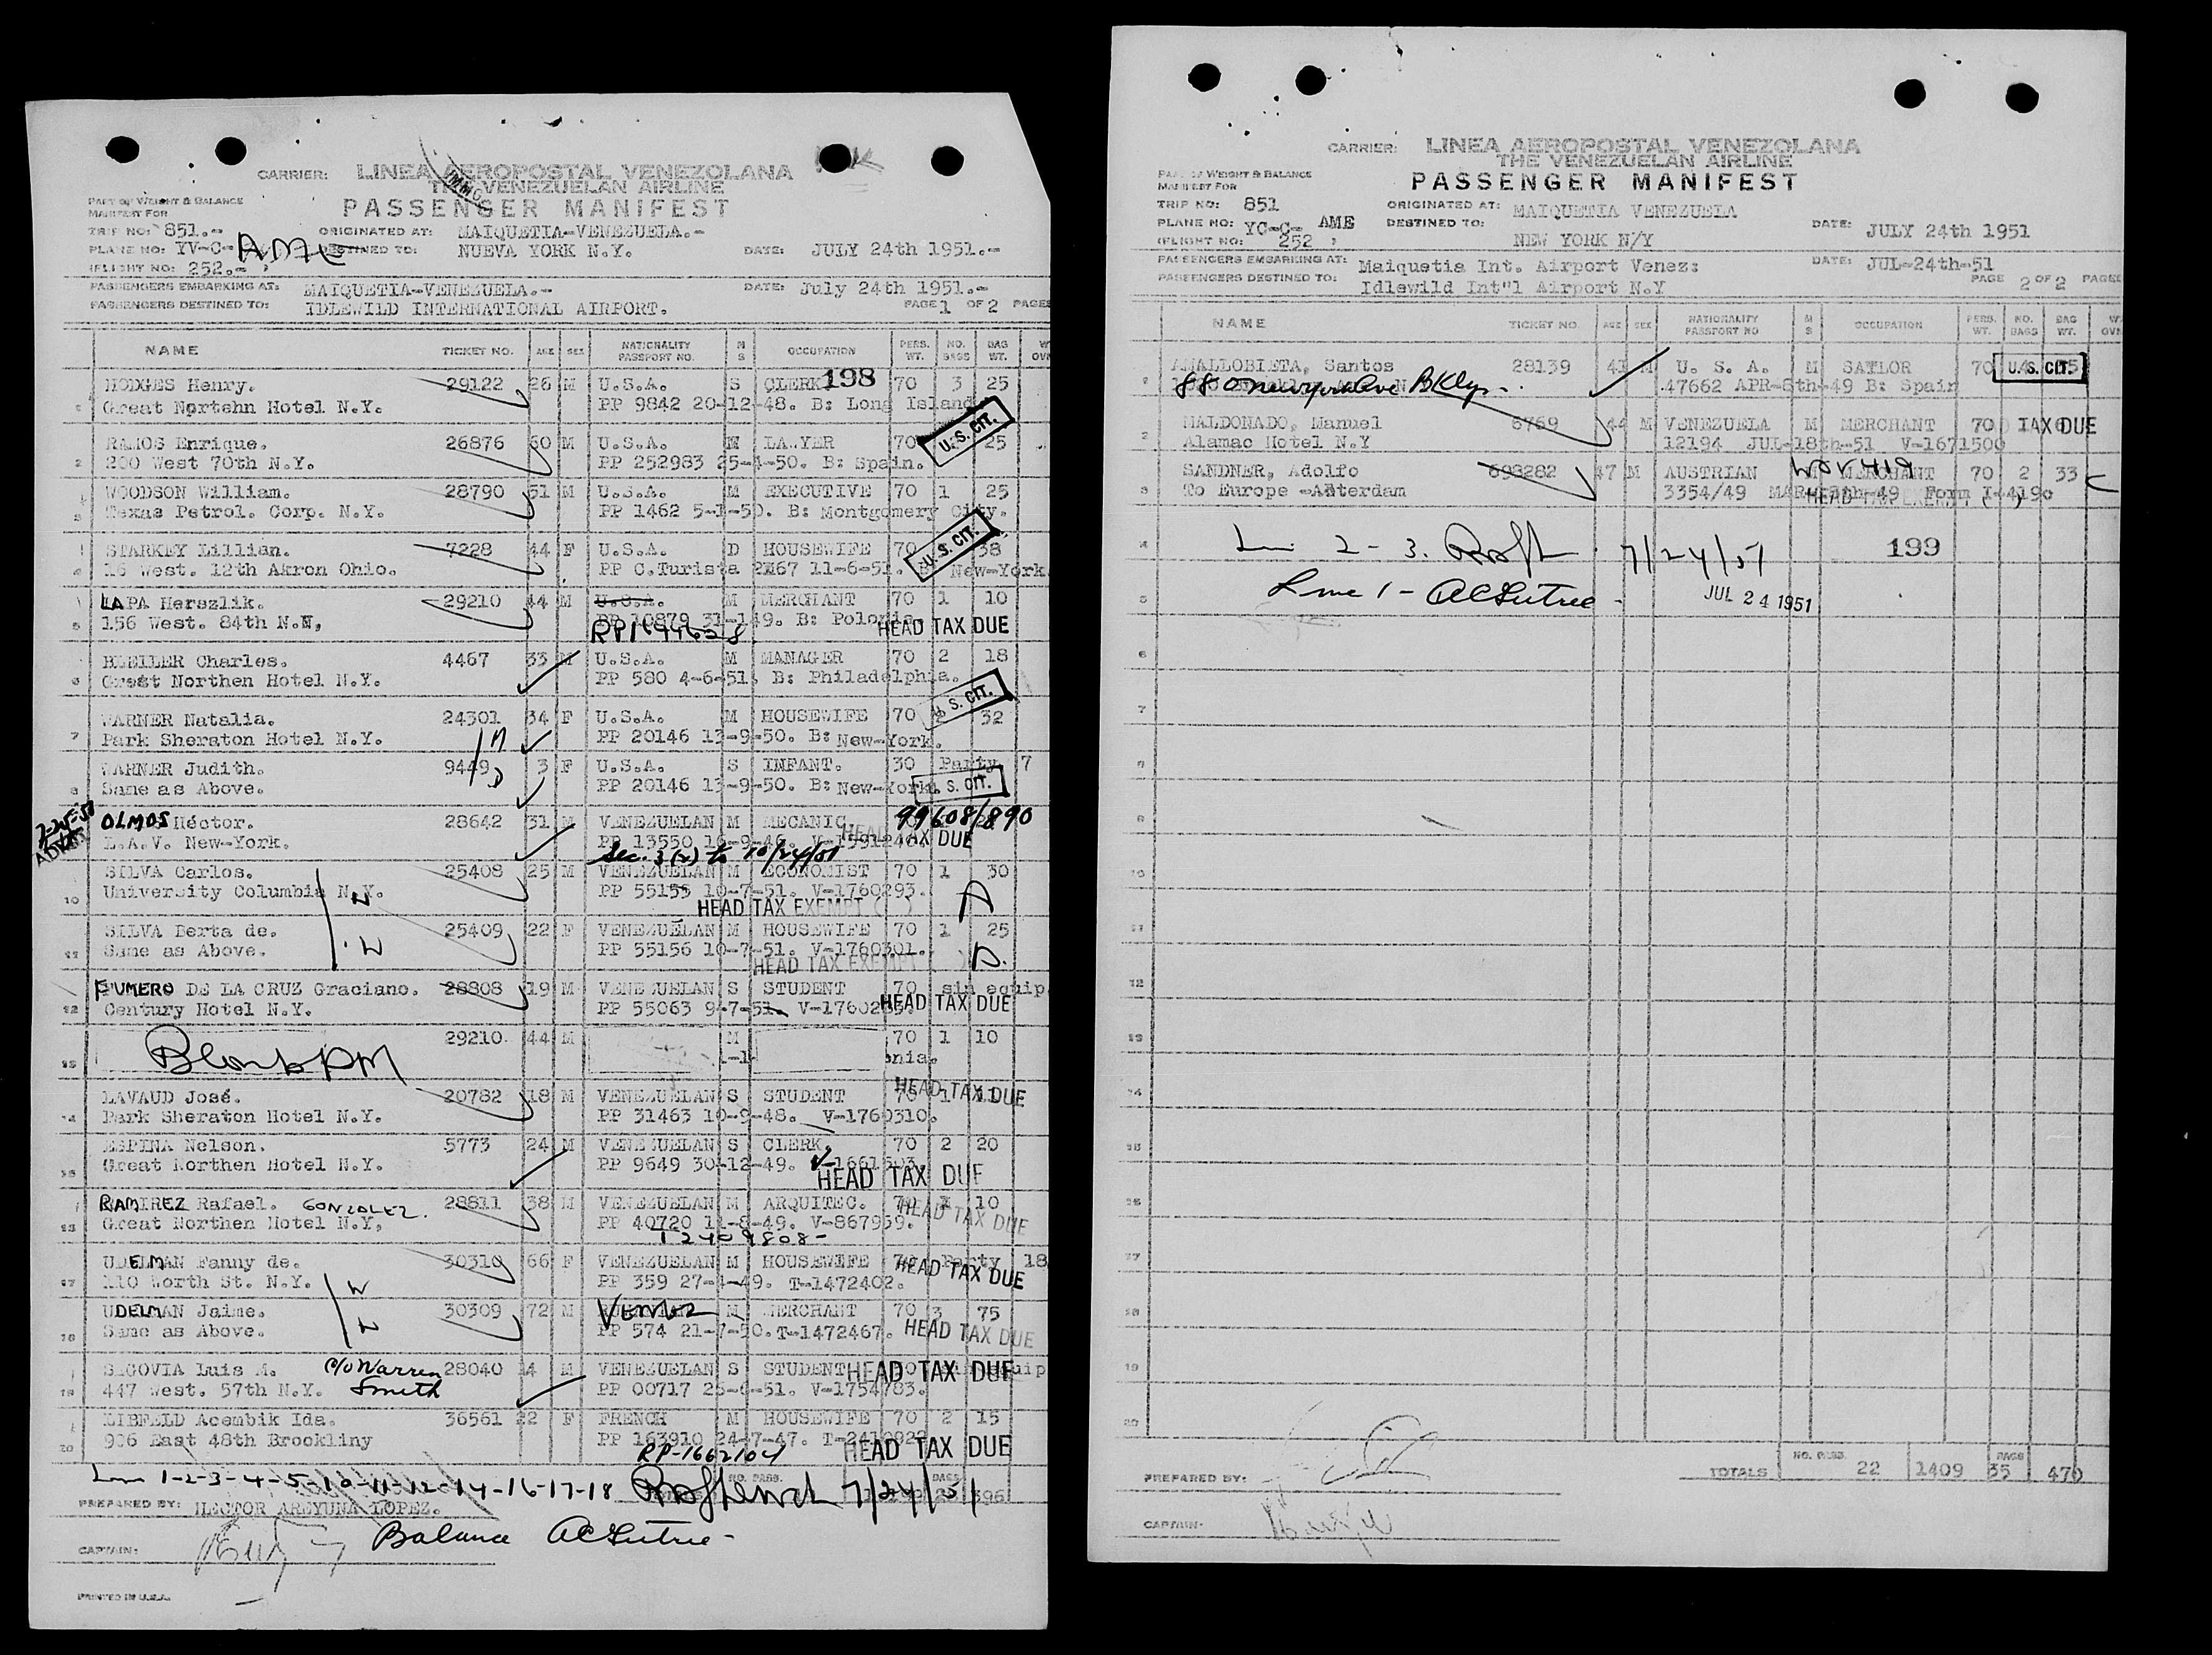 CARRIER: LINEA AEROPOSTAL VENEZOLANA
THE VENEZUELAN AIRLINE
PASSENGER MANIFEST
PART OF WEIGHT & BALANCE
MANIFEST FOR
TRIP NO: 851.- ORIGINATED AT: MAIQUETIA-VENEZUELA.-
PLANE NO: YV-C- AME DESTINED TO: NUEVA YORK N.Y. DATE: JULY 24th 1951.-
(FLIGHT NO: 252.- )
PASSENGERS EMBARKING AT: MAIQUETIA-VENEZUELA.- DATE: July 24th 1951.-
PASSENGERS DESTINED TO: IDLEWILD INTERNATIONAL AIRPORT. PAGE 1 OF 2 PAGES
NAME TICKET NO. AGE SEX NATIONALITY PASSPORT NO. M S OCCUPATION PERS. WT. NO. BAGS BAG WT.
HODGES Henry. 29122 26 M U.S.A. S CLERK 198 70 3 25
1 Great Nortehn Hotel N.Y. PP 9842 20-12-48. B: Long Island
RAMOS Enrique. 26876 60 M U.S.A. LAWYER 70 U.S. CIT. 25
2 200 West 70th N.Y. PP 252983 25-4-50. B: Spain.
WOODSON William. 28790 51 M U.S.A. M EXECUTIVE 70 1 25
3 Texas Petrol. Corp. N.Y. PP 1462 5-1-50. B: Montgomery City.
STARKEY Lillian. 7228 44 F U.S.A. D HOUSEWIFE 70 U.S. CIT. 38
4 16 West. 12th Akron Ohio. PP C.Turista 11-6-51. New-York.
LAPA Herszlik. 29210 44 M U.S.A. M MERCHANT 70 1 10
5 156 West. 84th N.N, 10879 31-1-49. B: Polonia. HEAD TAX DUE
RP1644628
BLEILER Charles. 4467 33 M U.S.A. M MANAGER 70 2 18
6 Great Northen Hotel N.Y. PP 580 4-6-51. B: Philadelphia.
WARNER Natalia. 24301 34 F U.S.A. M HOUSEWIFE 70 U.S. CIT. 32
7 Park Sheraton Hotel N.Y. M PP 20146 13-9-50. B: New-York.
WARNER Judith. 9449 3 F U.S.A. S INFANT. 30 Party 7
8 Same as Above. D PP 20146 13-9-50. B: New-York. U.S. CIT.
OLMOS Héctor. 28642 31 M VENEZUELAN M MECANIC. 99608/890
L.A.V. New-York. PP 13550 16-9-46. HEAD TAX DUE
Sec. 3(2) to 10/24/51
SILVA Carlos. 25408 25 M VENEZUELAN M ECONOMIST 70 1 30
10 University Columbia N.Y. PP 55155 10-7-51. V-1760293.
HEAD TAX EXEMPT ( )
SILVA Berta de. 25409 22 F VENEZUELAN M HOUSEWIFE 70 1 25
11 Same as Above. W PP 55156 10-7-51. V-1760301.
HEAD TAX EXEMPT ( )
FUMERO DE LA CRUZ Graciano. 28808 19 M VENEZUELAN S STUDENT 70 sin equip.
12 Century Hotel N.Y. PP 55063 9-7-51. HEAD TAX DUE
29210. 44 M M 70 1 10
13 Blank onia.
LAVAUD José. 20782 18 M VENEZUELAN S STUDENT HEAD TAX DUE
14 Park Sheraton Hotel N.Y. PP 31463 10-9-48. V-1760310.
ESPINA Nelson. 5773 24 M VENEZUELAN S CLERK. 70 2 20
15 Great Northen Hotel N.Y. PP 9649 30-12-49. HEAD TAX DUE
RAMIREZ Rafael. GONZALEZ. 28811 38 M VENEZUELAN M ARQUITEC. 70 1 10
Great Northen Hotel N.Y, PP 40720 11-8-49. V-867959. HEAD TAX DUE
T2409808-
UDELMAN Fanny de. 30310 66 F VENEZUELAN M HOUSEWIFE 70 Party 18
17 110 Worth St. N.Y. W PP 359 27-4-49. T-1472402. HEAD TAX DUE
UDELMAN Jaime. 30309 72 M Venez M MERCHANT 70 3 75
18 Same as Above. PP 574 21-7-50. T-1472467. HEAD TAX DUE
SEGOVIA Luis M. c/o Warren 28040 4 M VENEZUELAN S STUDENT HEAD TAX DUE
19 447 West. 57th N.Y. Smith PP 00717 25-6-51. V-1754783.
LIBFELD Acembik Ida. 36561 22 F FRENCH M HOUSEWIFE 70 2 15
20 906 East 48th Brookliny PP 163910 24-7-47. HEAD TAX DUE
RP-1662104
Line 1-2-3-4-5-10-11-12-14-16-17-18 7/24/51 396
PREPARED BY: HECTOR AREYUNA LOPEZ.
Balance
CAPTAIN:
PRINTED IN U.S.A.
CARRIER: LINEA AEROPOSTAL VENEZOLANA
THE VENEZUELAN AIRLINE
PASSENGER MANIFEST
PART OF WEIGHT & BALANCE
MANIFEST FOR
TRIP NO: 851 ORIGINATED AT: MAIQUETIA VENEZUELA
PLANE NO: YC-C- AME DESTINED TO: NEW YORK N/Y DATE: JULY 24th 1951
(FLIGHT NO: 252 )
PASSENGERS EMBARKING AT: Maiquetia Int. Airport Venez: DATE: JUL-24th-51
PASSENGERS DESTINED TO: Idlewild Int"l Airport N.Y PAGE 2 OF 2 PAGES
NAME TICKET NO. AGE SEX NATIONALITY PASSPORT NO M S OCCUPATION PERS. WT. NO. BAGS BAG WT.
AMALLOBIETA, Santos 28139 41 M U. S. A. M SAILOR 70 U.S. CIT.
880 Bklyn. 47662 APR-8th-49 B: Spain
MALDONADO, Manuel 6769 44 M VENEZUELA M MERCHANT 70 TAX DUE
2 Alamac Hotel N.Y 12194 JUL-18th-51 V-1671500
SANDNER, Adolfo 698282 47 M AUSTRIAN MERCHANT 70 2 33
3 To Europe -Amsterdam 3354/49 Form I-419c
4 2 - 3. 7/24/51 199
5 Line 1 - JUL 24 1951
6
7
8
9
10
11
12
13
14
15
16
17
18
19
20
TOTALS NO. PASS. 22 1409 BAGS 35 470
PREPARED BY:
CAPTAIN: